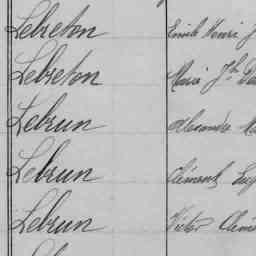 Lebreton Emile Henri J
Lebreton Marie Jh
Lebrun Alexandre Ma
Lebrun Clément Eug
Lebrun Victor Clém